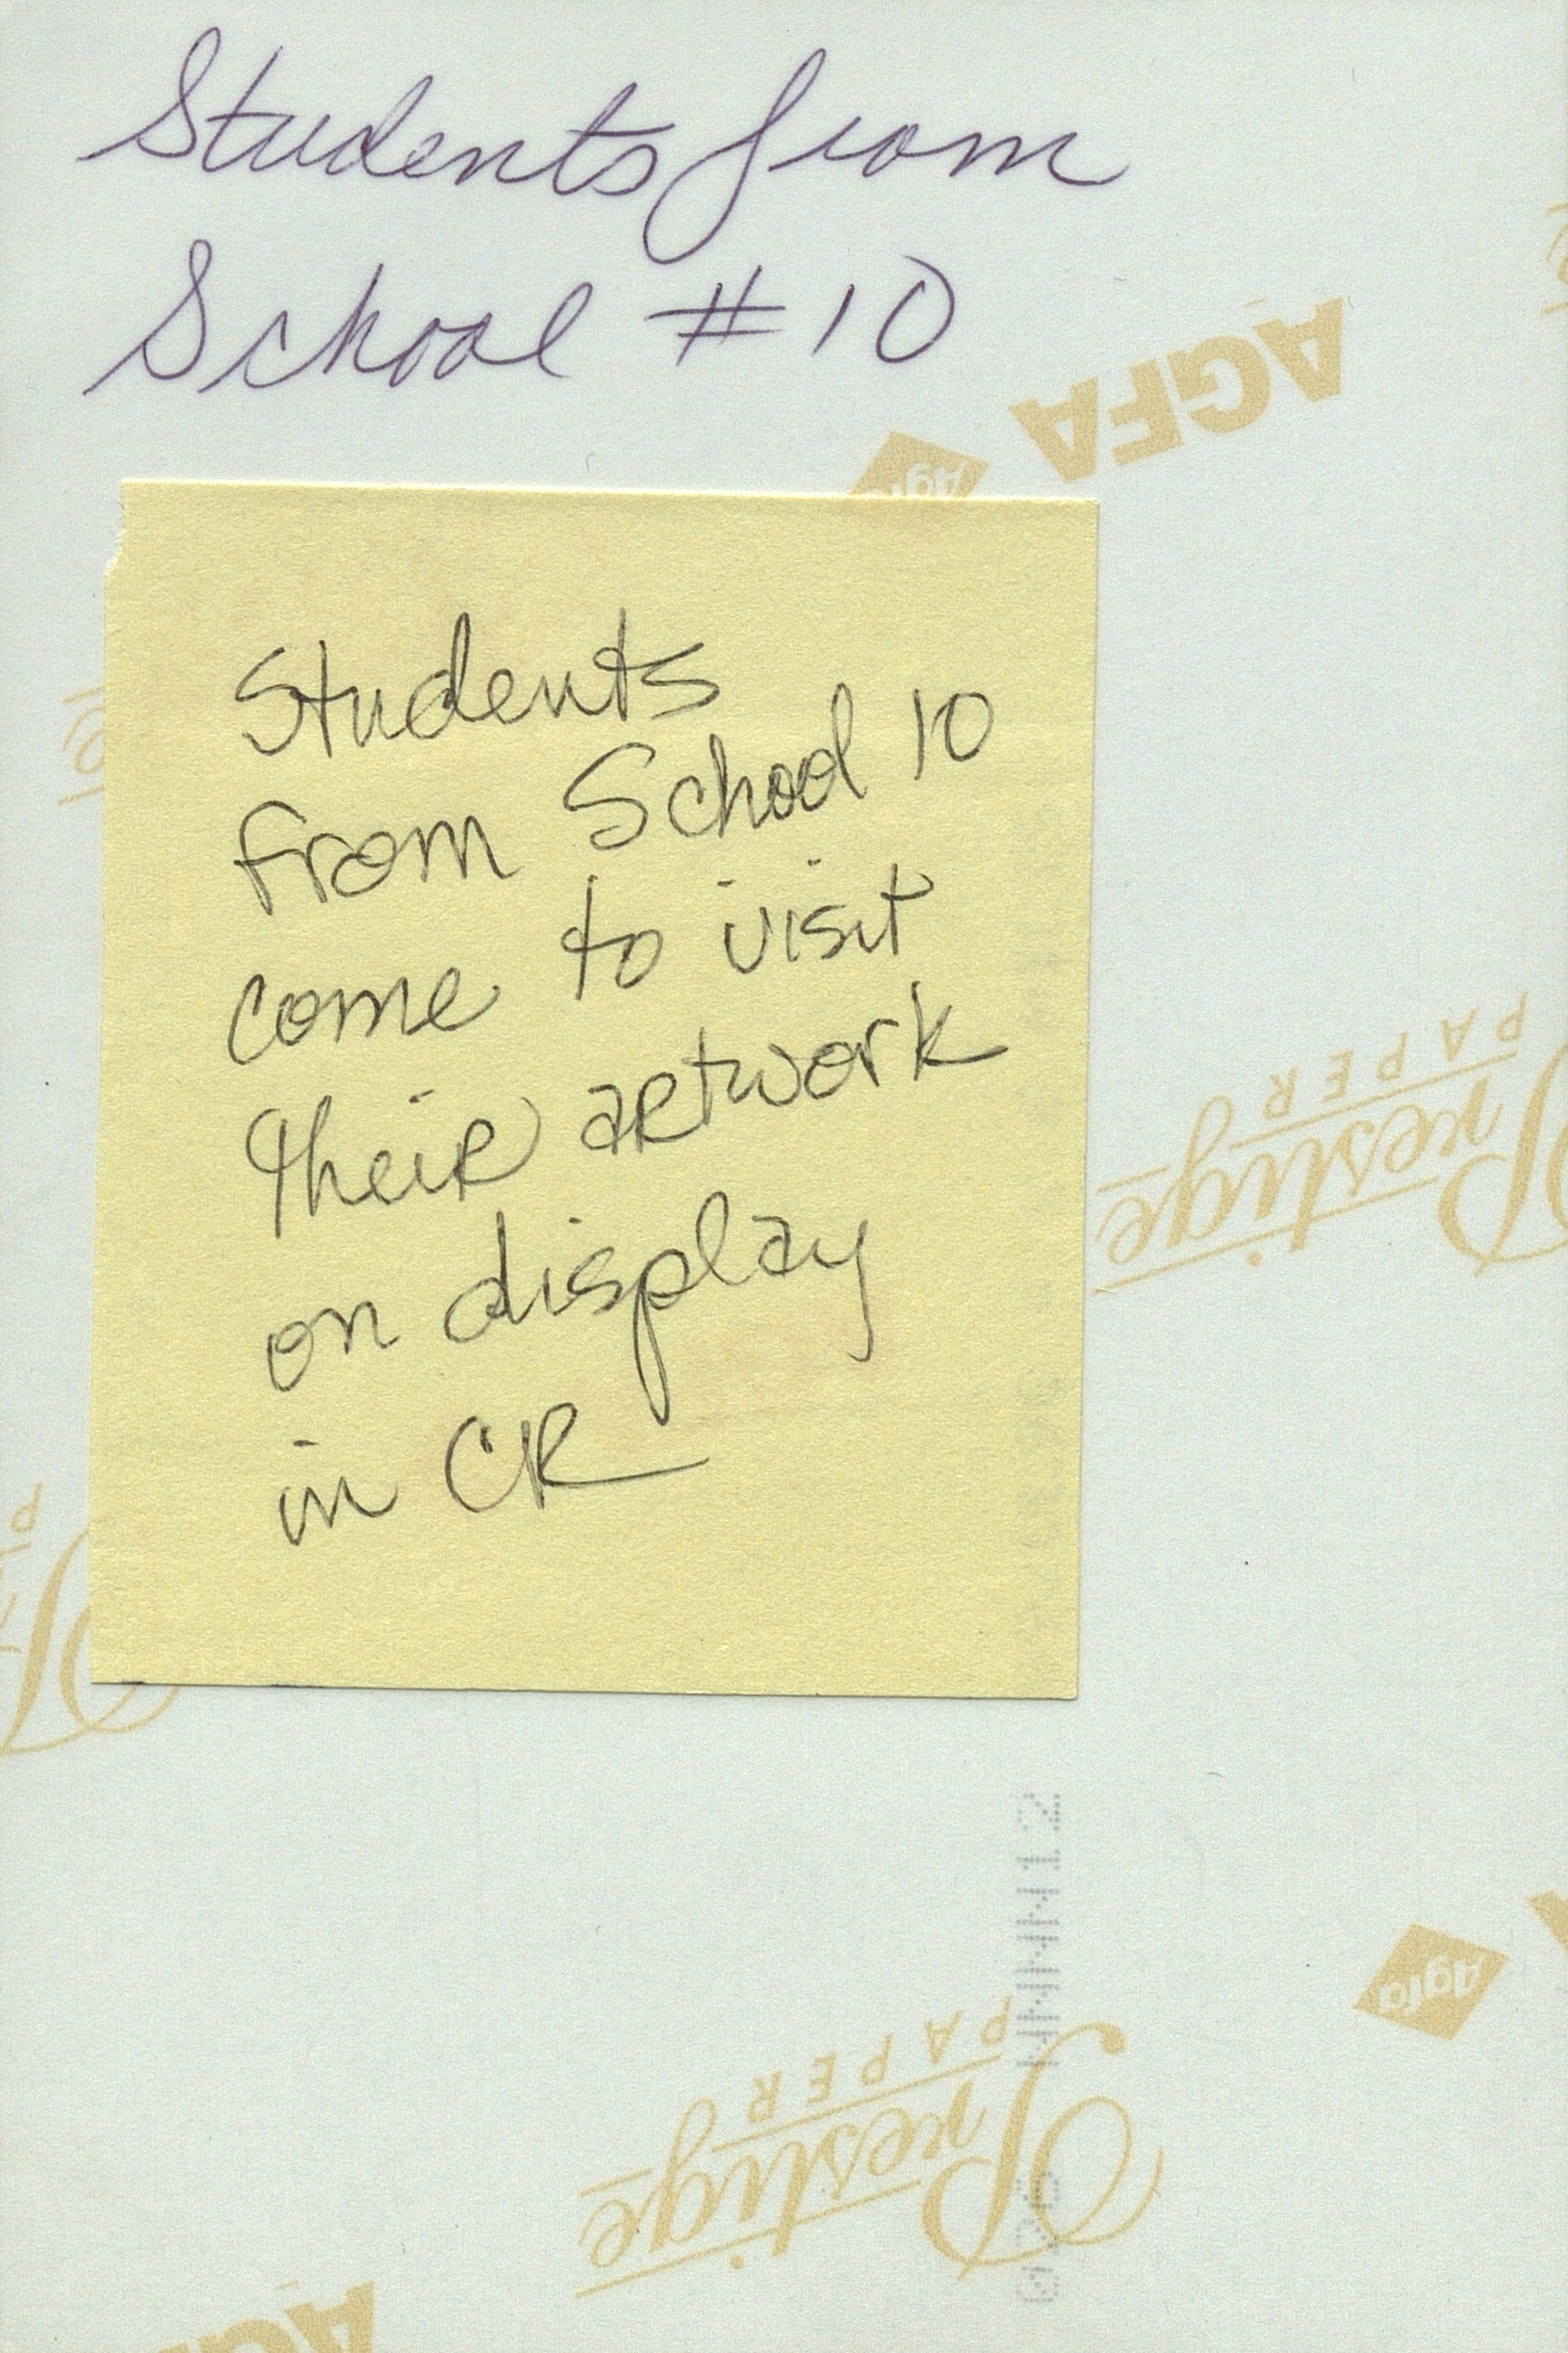 Students from
School #10
AGFA
Agfa
Students
from School 10
come to visit
their artwork
on display
in CR
Prestige
PAPER
Agfa
Prestige
PAPER